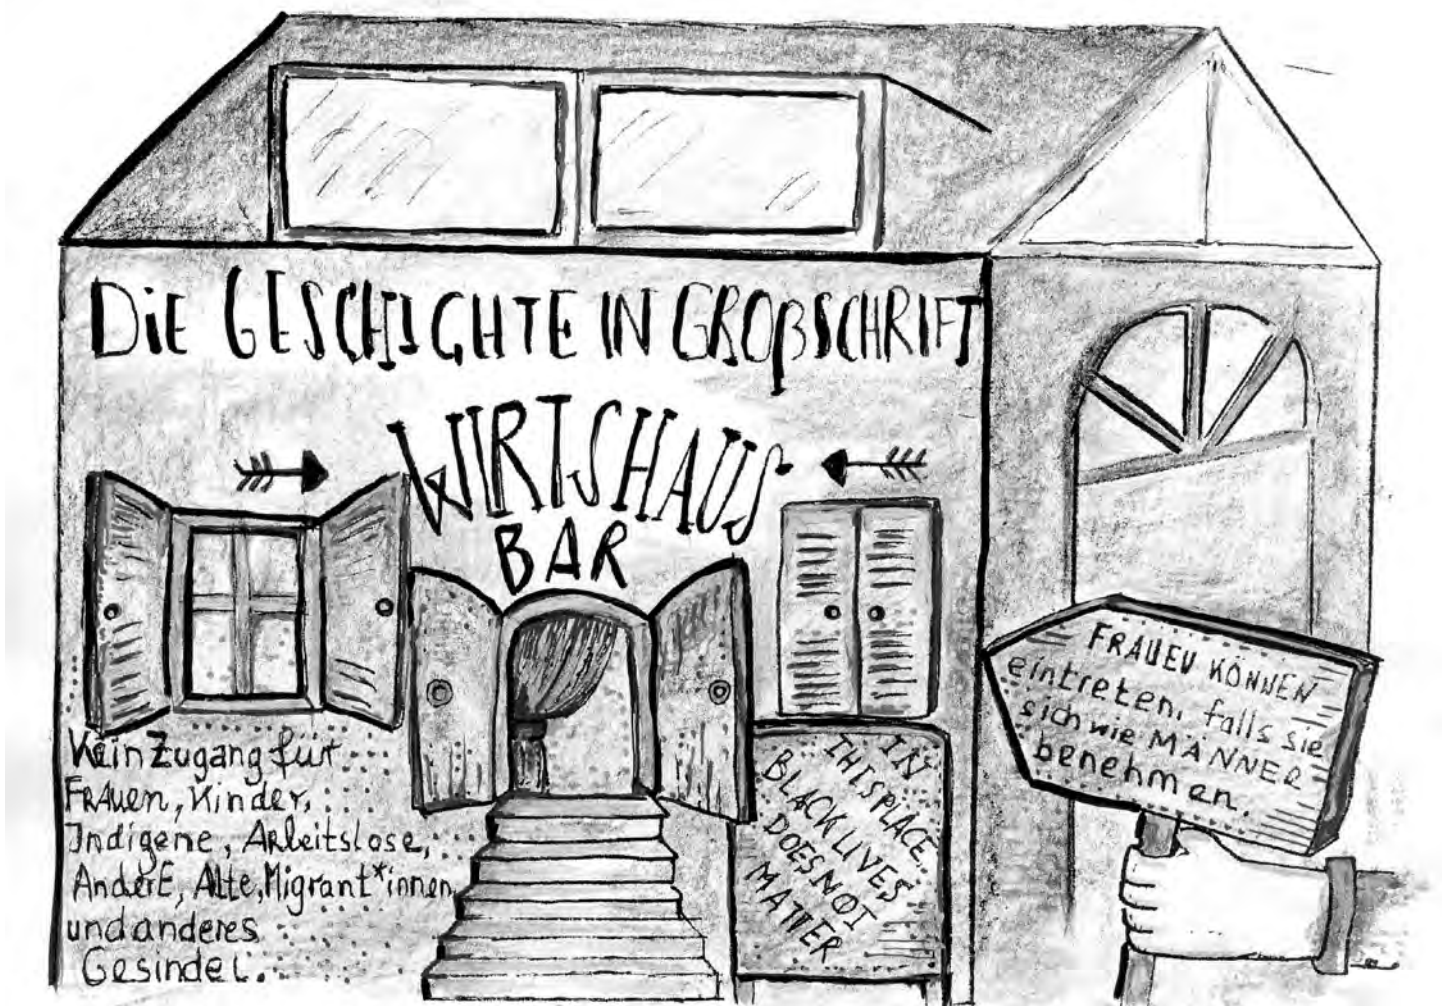 DiE GESCHICHTE IN GROßSCHRIFT
WIRTSHAUS
BAR
Kein Zugang für
FRAuen, Kinder,
Indigene, Arbeitslose,
AnderE, Alte, Migrant*innen,
und anderes
Gesindel.
IN
THIS PLACE
BLACK LIVES
DOES NOT
MATTER
FRAUEN KÖNNEN
eintreten, falls sie
sich wie MÄNNER
benehmen.